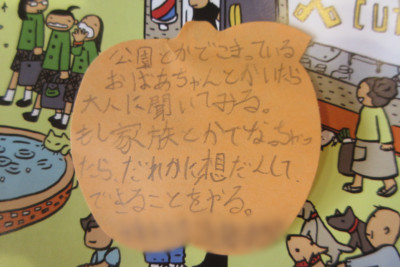 CUT
公園とかでこまっている
おばあちゃんとかいたら
大人に聞いてみる。
もし家族とかでなっちゃっ
たら、だれかに想だんして、
できることをやる。